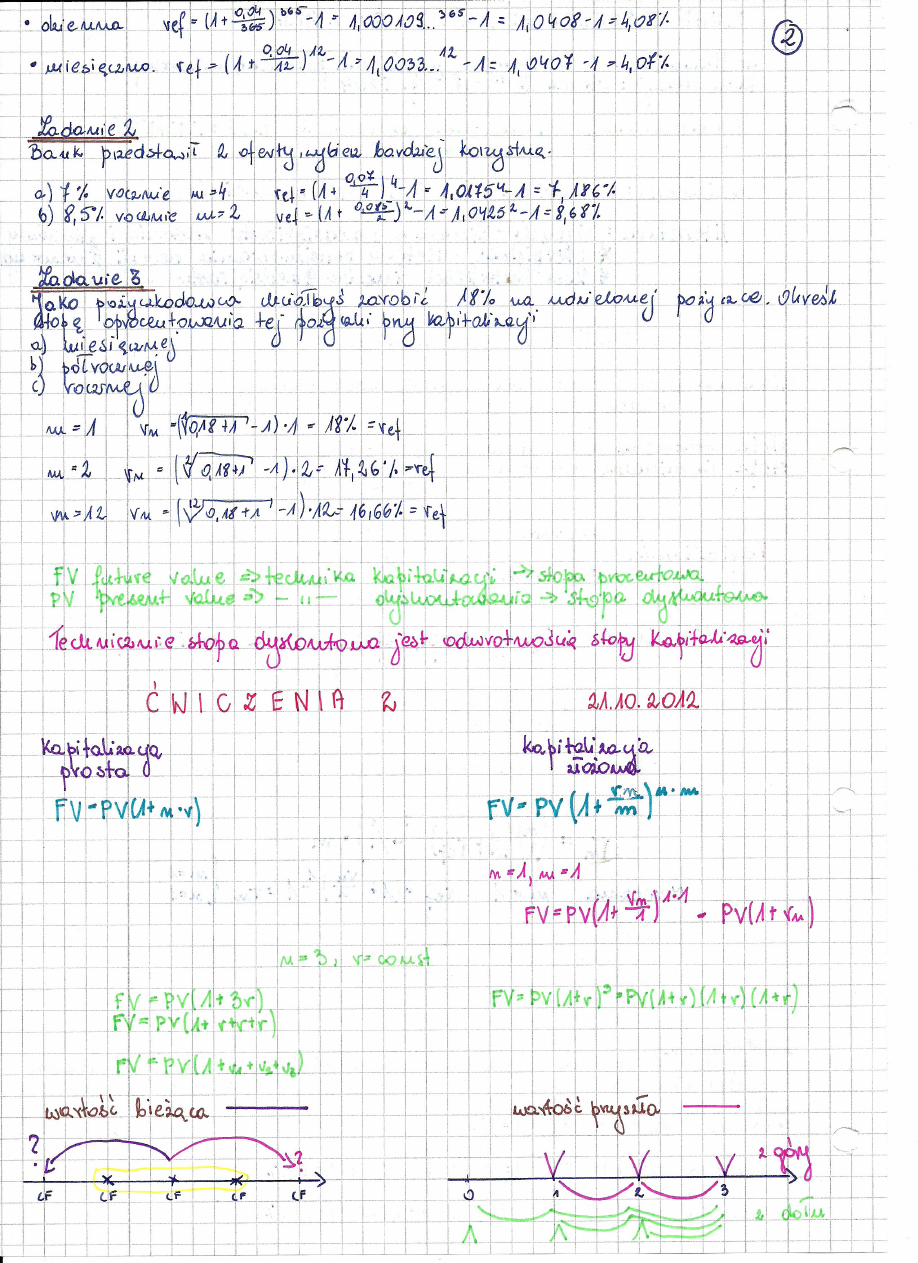 • dzienna ref = (1 + 0,04/365)^365 - 1 = 1,000109...^365 - 1 = 1,0408 - 1 = 4,08%
②
• miesięczno. ref = (1 + 0,04/12)^12 - 1 = 1,0033...^12 - 1 = 1,0407 - 1 = 4,07%
Zadanie 2
Bank przedstawił 2 oferty, wybierz bardziej korzystną.
a) 7% rocznie m=4 ref = (1 + 0,07/4)^4 - 1 = 1,0175^4 - 1 = 7,186%
b) 8,5% rocznie m=2 ref = (1 + 0,085/2)^2 - 1 = 1,0425^2 - 1 = 8,68%
Zadanie 3
Jako pożyczkodawca chciałbyś zarobić 18% na udzielonej pożyczce. Określ
stopę oprocentowania tej pożyczki przy kapitalizacji
a) miesięcznej
b) półrocznej
c) rocznej
m = 1 rn = (¹√(0,18+1) - 1)·1 = 18% = ref
m = 2 rn = (²√(0,18+1) - 1)·2 = 17,26% = ref
m = 12 rn = (¹²√(0,18+1) - 1)·12 = 16,66% = ref
FV future value ⇒ technika kapitalizacji → stopa procentowa
PV present value ⇒ – " – dyskontowania → stopa dyskontowa
Technicznie stopa dyskontowa jest odwrotnością stopy kapitalizacji
ĆWICZENIA 2 21.10.2012
kapitalizacja prosta
kapitalizacja złożona
FV = PV(1 + n·r)
FV = PV(1 + rn/m)^n·m
n = 1, m = 1
FV = PV(1 + rn/1)^1·1 = PV(1 + rn)
n = 3, r = const
FV = PV(1 + 3r)
FV = PV(1+r)^3 = PV(1+r)(1+r)(1+r)
FV = PV(1 + r+r+r)
FV = PV(1 + r1 + r2 + r3)
wartość bieżąca
wartość przyszła
? ?
z góry
CF CF CF CF CF
0 1 2 3
z dołu